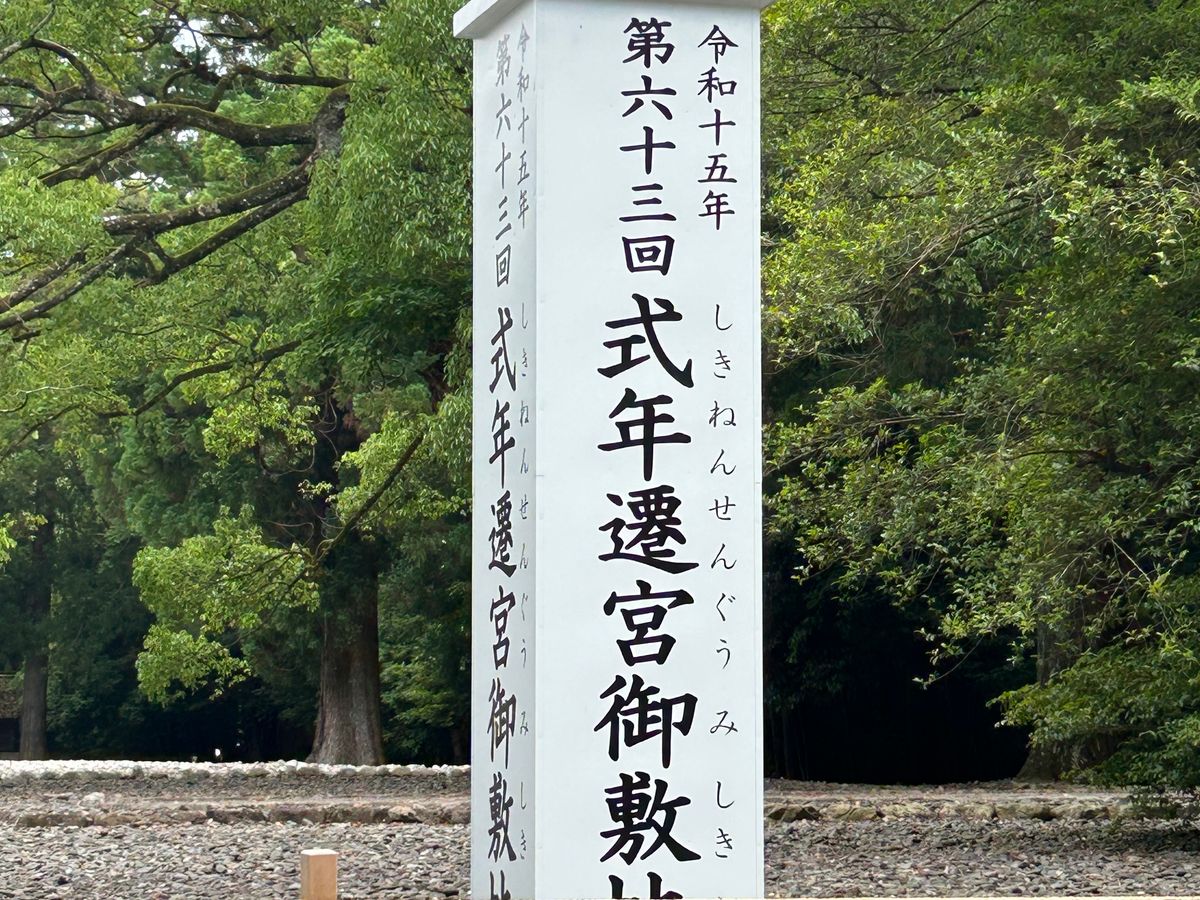 令和十五年
第六十三回
式年遷宮御敷
しきねんせんぐう み しき
令和十五年
第六十三回
式年遷宮御敷
しきねんせんぐう み しき